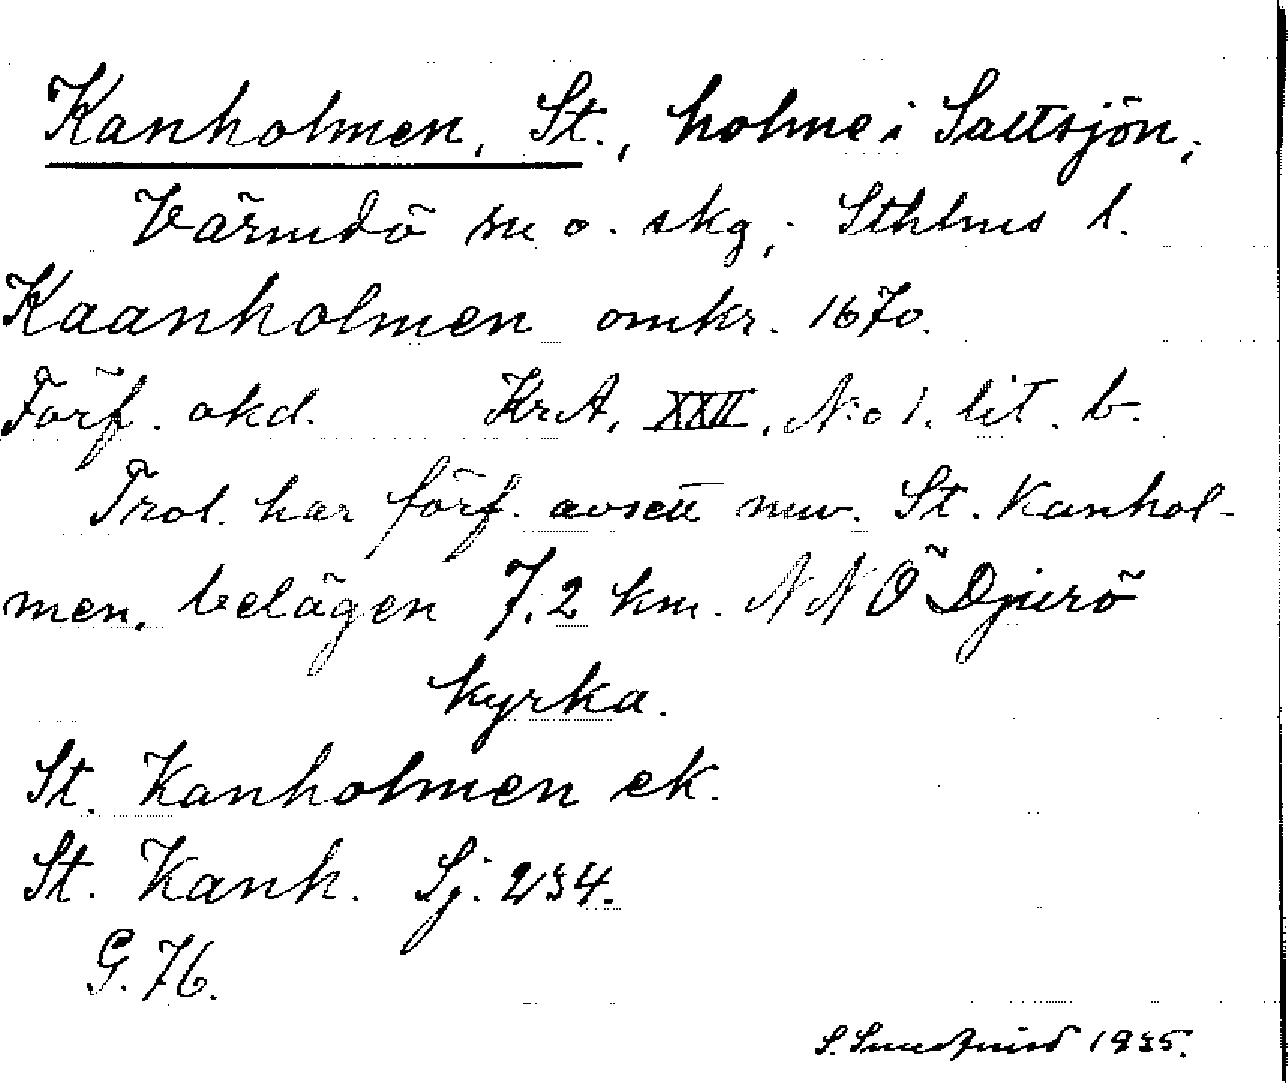 Kanholmen, St., holme i Saltsjön,
Värmdö sn o. skg, Sthlms l.
Kaanholmen omkr. 1670.
Förf. okd. KrA, XXII, N:o 1. lit. b.
Trol. har förf. avsett nuv. St. Kanhol-
men, belägen 7,2 km. NNÖ Djurö
kyrka.
St. Kanholmen ek.
St. Kanh. Sj. 234.
G. 76.
S. 1935.